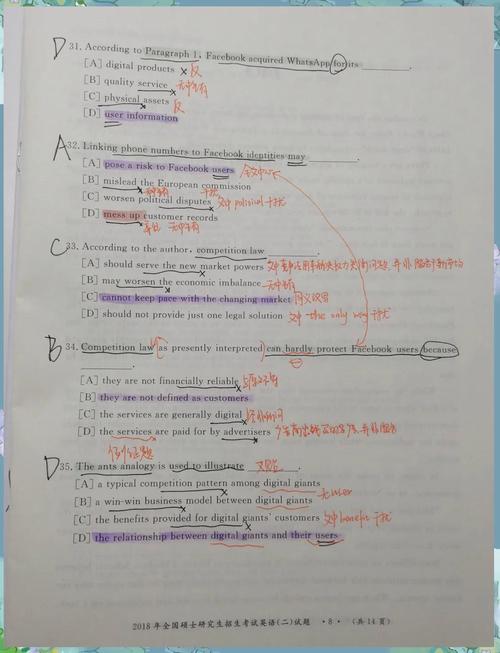 D 31. According to Paragraph 1, Facebook acquired WhatsApp for its ________.
[A] digital products × 反
[B] quality service × 无中生有
[C] physical assets × 反
[D] user information
A 32. Linking phone numbers to Facebook identities may ________.
[A] pose a risk to Facebook users
[B] mislead the European commission
无中生有 干扰
[C] worsen political disputes × 文中 political 干扰
[D] mess up customer records
无中生有
C 33. According to the author, competition law ________.
[A] should serve the new market powers
[B] may worsen the economic imbalance 无中生有
[C] cannot keep pace with the changing market 同义改写
[D] should not provide just one legal solution 文中 the only way 干扰
B 34. Competition law (as presently interpreted) can hardly protect Facebook users because
________.
[A] they are not financially reliable
[B] they are not defined as customers
[C] the services are generally digital
[D] the services are paid for by advertisers
例证题
D 35. The ants analogy is used to illustrate ________.
[A] a typical competition pattern among digital giants
[B] a win-win business model between digital giants 无 user
[C] the benefits provided for digital giants' customers 文中 benefit 干扰
[D] the relationship between digital giants and their users
2018 年全国硕士研究生招生考试英语(二)试题 · 8 · (共 14 页)